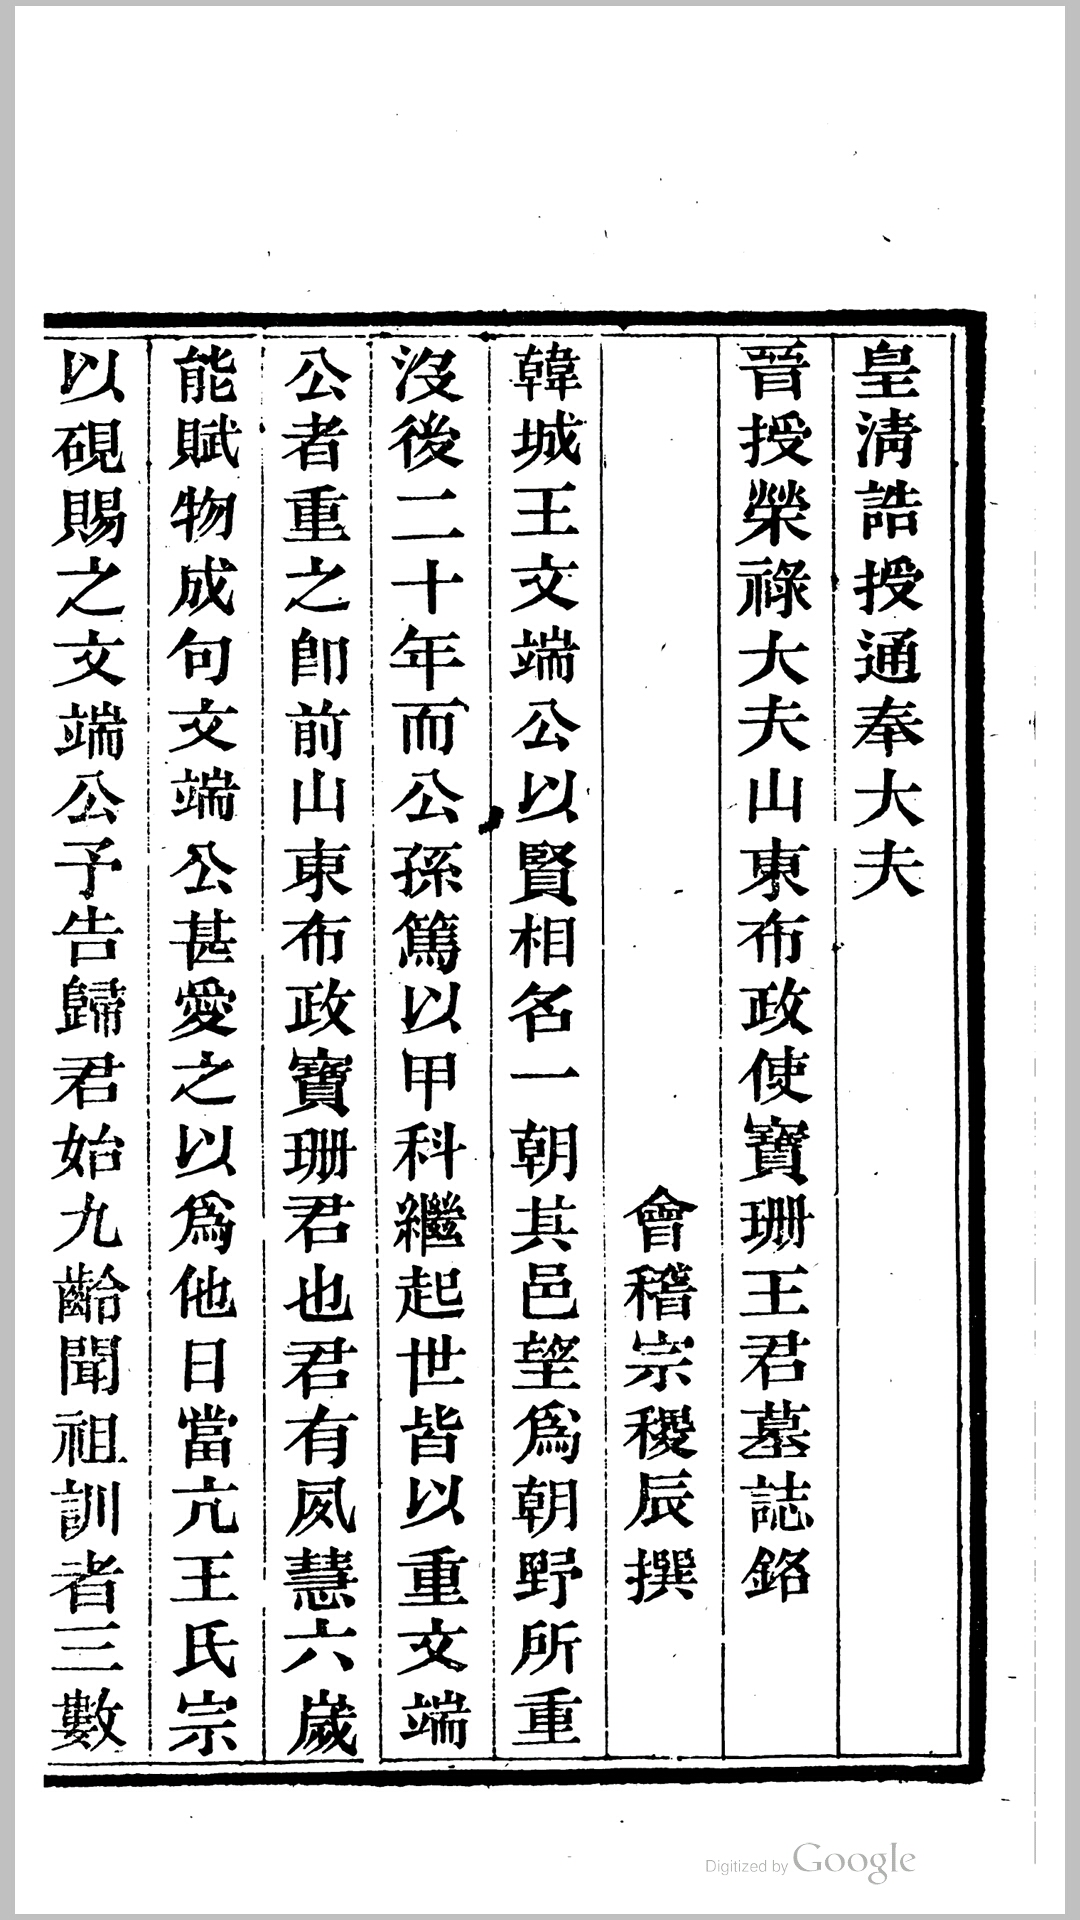 皇淸誥授通奉大夫
晉授榮祿大夫山東布政使寶珊王君墓誌銘
會稽宗稷辰撰
韓城王文端公以賢相名一朝其邑望爲朝野所重
沒後二十年而公孫篤以甲科繼起世皆以重文端
公者重之卽前山東布政寶珊君也君有夙慧六歲
能賦物成句文端公甚愛之以爲他日當亢王氏宗
以硯賜之文端公予告歸君始九齡聞祖訓者三數
Digitized by Google